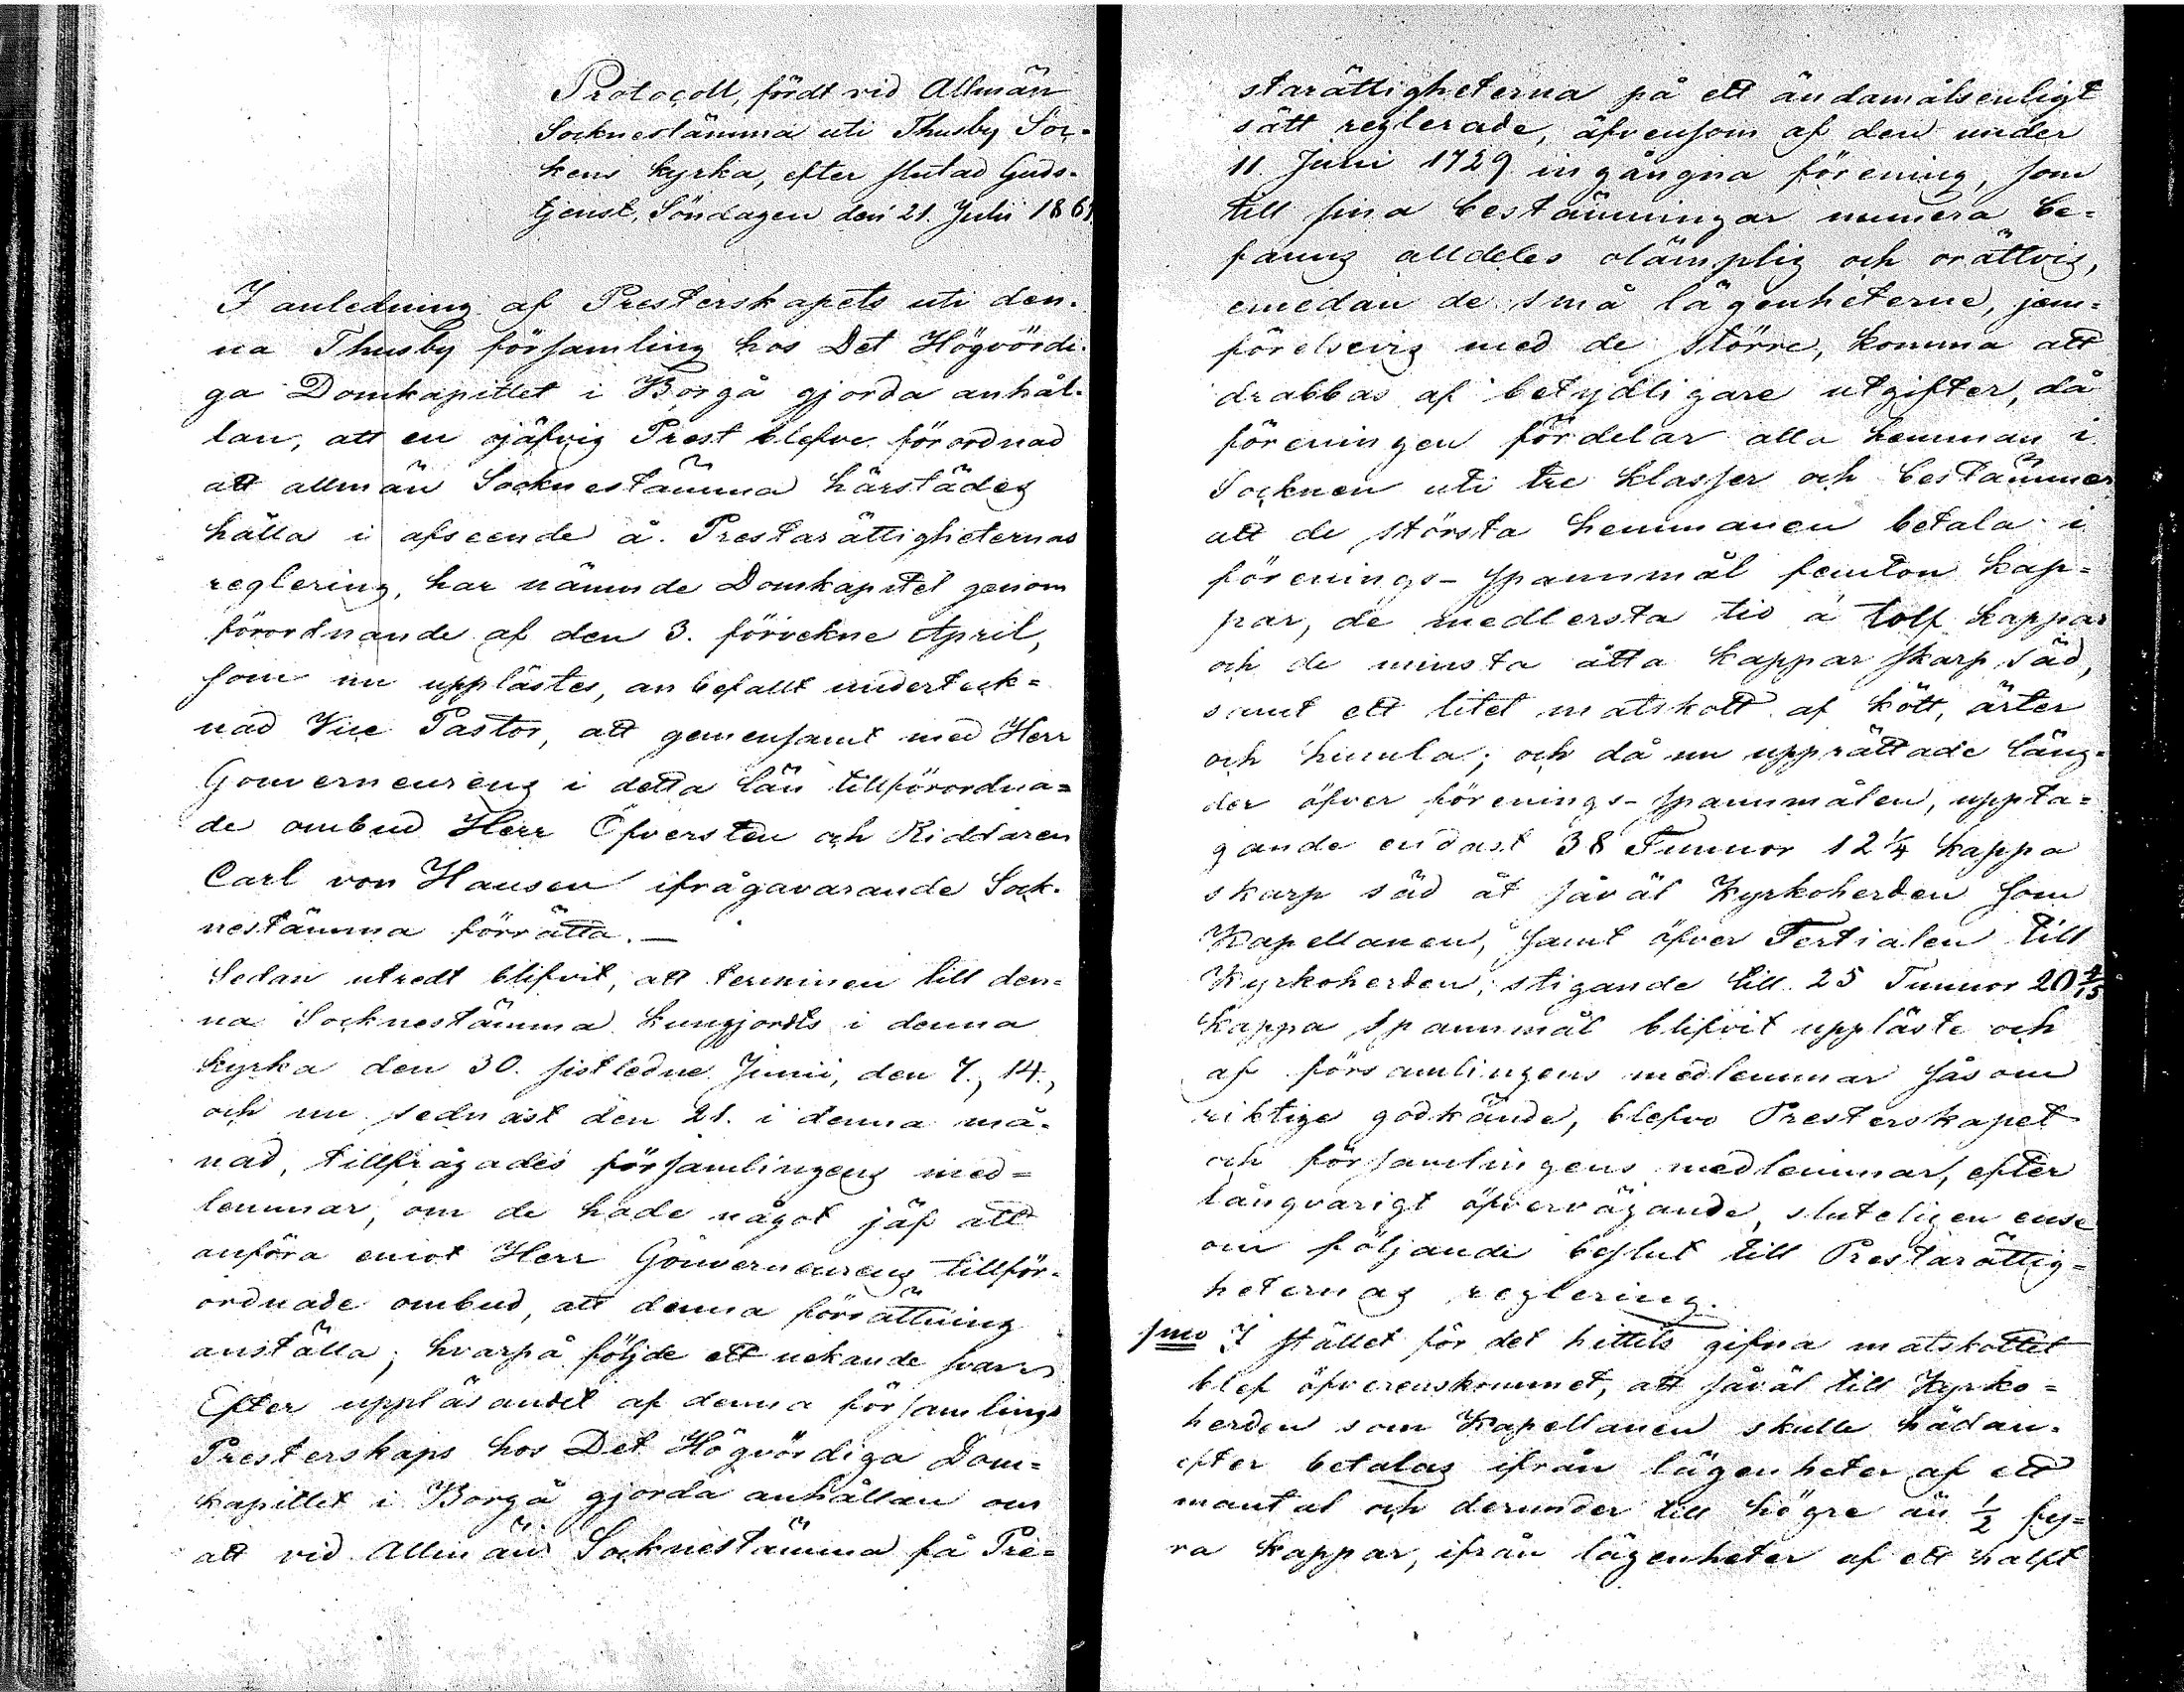 Protocoll, fördt vid Allmän
Socknestämma uti Thusby Soc-
kens kyrka, efter slutad Guds-
tjenst, Söndagen den 21. Julii 1861
I anledning af Presterskapets uti den-
na Thusby församling hos Det Högvördi-
ga Domkapitlet i Borgå gjorda anhål-
lan, att en ojäfvig Prest blefve förordnad
att allmän Socknestämma härstädes
hålla i afseende å Prestarättigheternas
reglering, har nämnde Domkapitel genom
förordnande af den 3. förvekne April,
som nu upplästes, anbefallt underteck=
nad Vice Pastor, att gemensamt med Herr
Gouverneurens i detta län tillförordna=
de ombud Herr Öfversten och Riddaren
Carl von Hausen ifrågavarande Sock-
nestämma förrätta.—
Sedan utredt blifvit, att terminen till den=
na Socknestämma kungjordts i denna
kyrka den 30. sistledne Junii, den 7., 14.,
och nu sednast den 21. i denna må-
nad, tillfrågades församlingens med=
lemmar, om de hade något jäf att
anföra emot Herr Gouverneurens tillför-
ordnade ombud, att denna förrättning
anställa; hvarpå följde ett nekande svar.
Efter uppläsandet af denna församlings
Presterskaps hos Det Högvördiga Dom=
kapitlet i Borgå gjorda anhållan om
att vid Allmän Socknestämma få Pre=
starättigheterna på ett ändamålsenligt
sätt reglerade, äfvensom af den under
11. Juni 1729 ingångna förening, som
till sina bestämningar numera be=
fanns alldeles olämplig och orättvis,
emedan de små lägenheterne, jem=
förelsevis med de större, komma att
drabbas af betydligare utgifter, då
föreningen fördelar alla hemman i
Socknen uti tre klasser och bestämmer
att de största hemmanen betala i
förenings-spannmål femton kap=
par, de medlersta tio à tolf kappar
och de minsta åtta kappar skarp säd,
samt ett litet matskott af kött, ärter
och humla; och då nu upprättade läng-
der öfver förenings-spannmålen, uppta=
gande endast 38 Tunnor 12 1/4 kappa
skarp säd åt såväl Kyrkoherden som
Kapellanen, samt öfver Tertialen till
Kyrkoherden, stigande till 25 Tunnor 20 4/15
kappa spannmål blifvit uppläste och
af församlingens medlemmar såsom
riktige godkände, blefvo Presterskapet
och församlingens medlemmar, efter
långvarigt öfvervägande, sluteligen ense
om följande beslut till Prestarättig=
heternas reglering.
1mo I stället för det hittils gifna matskottet
blef öfverenskommet, att såväl till Kyrko=
herden som Kapellanen skulle hädan-
efter betalas ifrån lägenheter af ett
mantal och derunder till högre än 1/2 fy=
ra kappar, ifrån lägenheter af ett halft